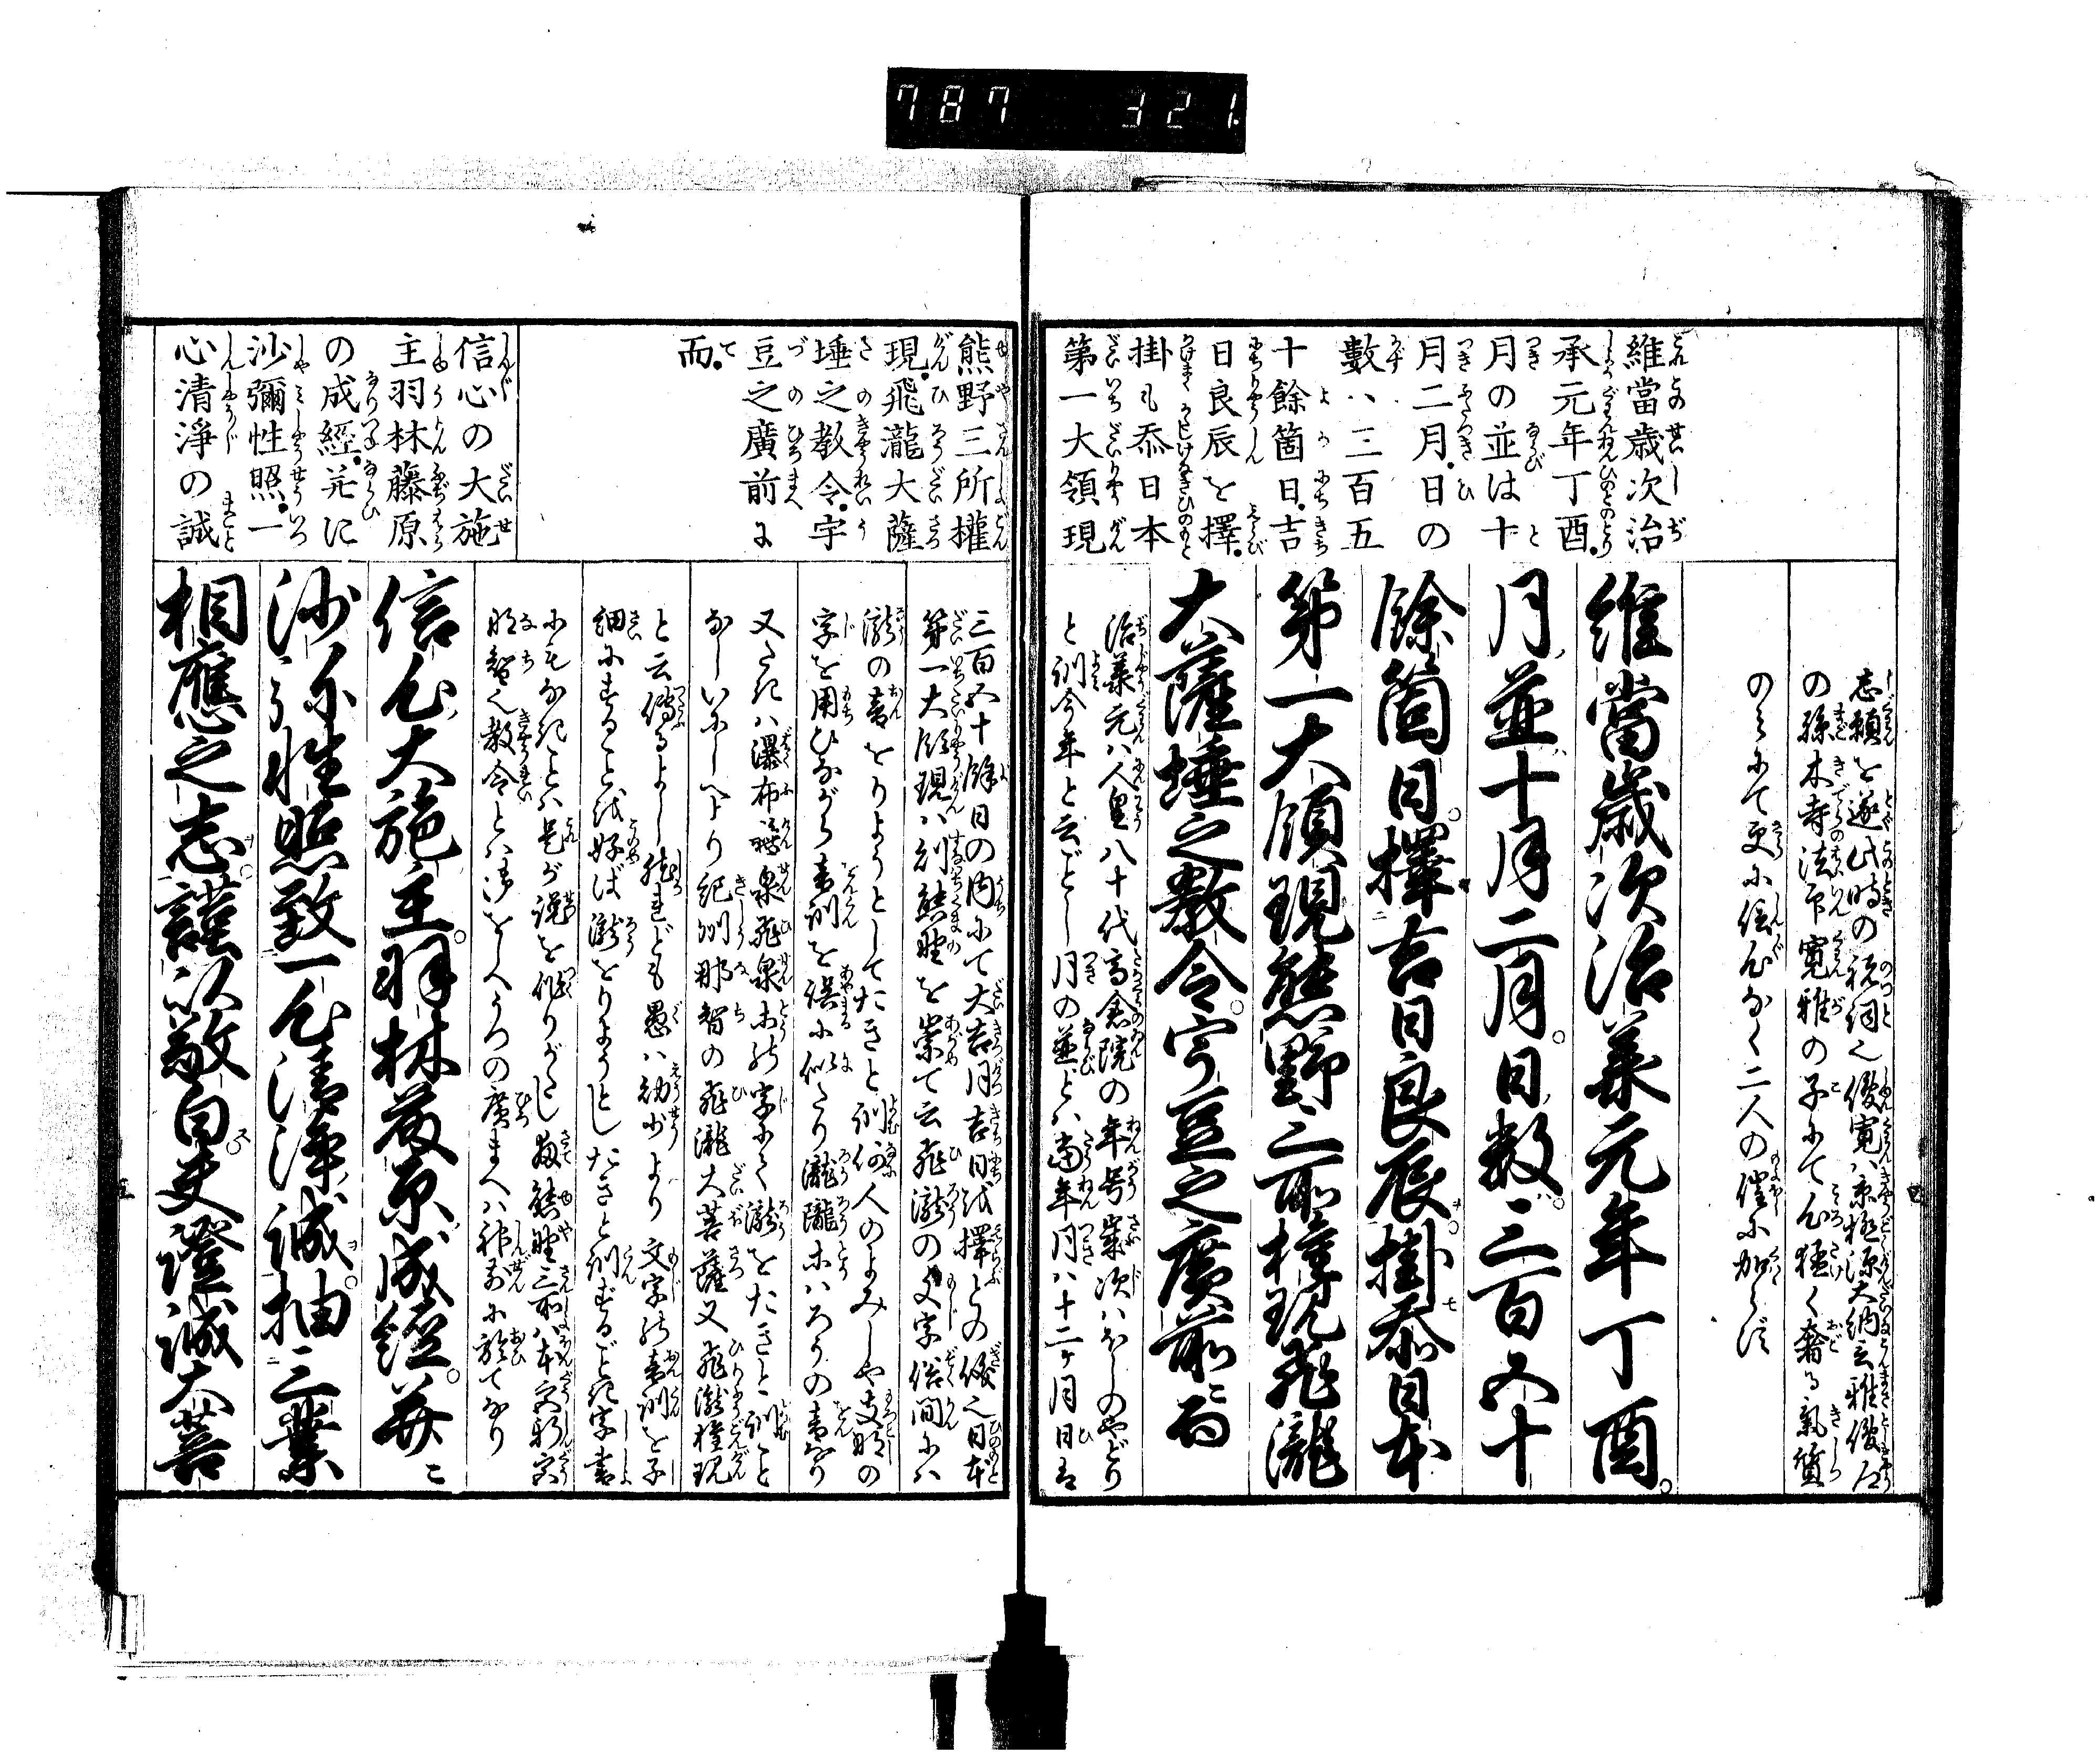 787 321.
維當歳次治
承元年丁酉。
月の並は十
月二月。日の
數ハ三百五
十餘箇日。吉
日良辰を擇。
掛も忝日本
第一大領現
志願を遂此時の祝詞也俊寛ハ京極源大納言雅俊卿
の孫木寺法印寛雅の子にて心猛く奢る氣質
のミにて更に信心なく二人の催に加らず
維當歳次治承元年丁酉。
月並十月二月。日数三百五十
餘箇日。擇吉日良辰掛忝日本
第一大領現熊野三所権現飛瀧
大薩埵之教令。宇豆之廣前而
治承元ハ人皇八十代高倉院の年号歳次ハほしのやどり
と訓今年と云がごとし月の並とハ當年月ハ十二ヶ月日は
熊野三所權
現。飛瀧大薩
埵之教令。宇
豆之廣前に
而。
信心の大施
主羽林藤原
の成經。并に
沙彌性照。一
心清淨の誠
三百五十餘日の内にて大吉月吉日を擇との儀也日本
第一大領現ハ則熊野を崇て云飛瀧の文字俗間にハ
瀧の音をりようとしてたきと訓何人のよみしや支那の
字を用ひながら音訓を誤るに似たり瀧瀧ホハろうの音なり
又たきハ瀑布懸泉飛泉ホの字にて瀧をたきと訓こと
なしいにしへより紀州那智の飛瀧大菩薩又飛瀧権現
と云傳るよし然れども愚ハ幼少より文字の音訓を子
細にすることを好ば瀧をりようとしたきと訓ずるごとき字書
にもなきことハ是が説を作りがたし扨熊野三所ハ本宮新宮
那智也教令とハ御をしへうつの廣まへハ神前に於てなり
信心大施主。羽林藤原成經。并
沙弥性照致一心清浄誠。抽三業
相應之志。謹以敬白。夫證誠大菩